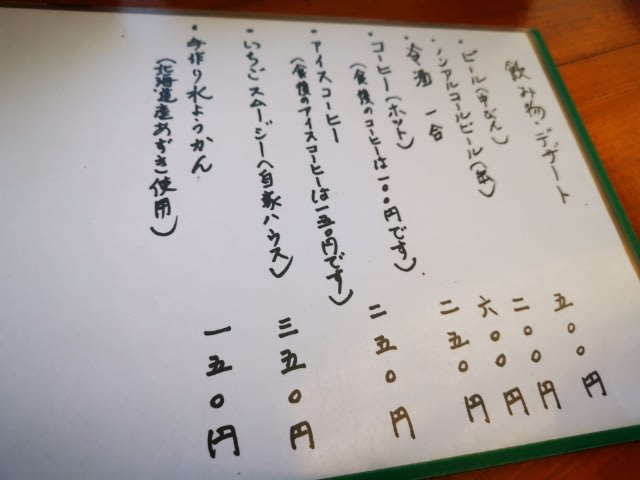 飲み物・デザート
・ビール(中びん) 五〇〇円
・ノンアルコールビール(缶) 二〇〇円
・冷酒 一合 六〇〇円
・コーヒー(ホット) 二五〇円
(食後のコーヒーは一〇〇円です)
・アイスコーヒー 二五〇円
(食後のアイスコーヒーは一五〇円です)
・いちごスムージー(自家ハウス) 三五〇円
・手作り水ようかん 一五〇円
(北海道産あずき使用)